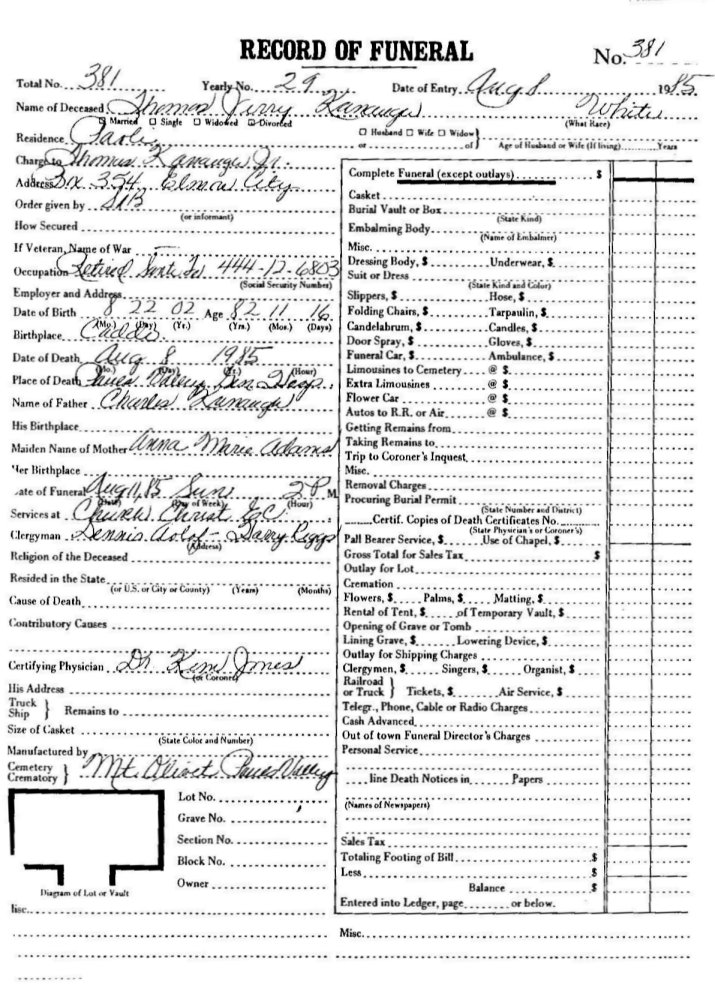 RECORD OF FUNERAL
No. 381
Total No. 381 Yearly No. 29 Date of Entry Aug 8 1985
Name of Deceased Thomas Jerry Kanaugu White
Married Single Widowed Divorced (What Race)
Residence Paoli Husband Wife Widow
or of Age of Husband or Wife (If living) Years
Charge to Thomas Kanaugu Jr.
Address Bx 354 Elmore City
Order given by
(or informant)
How Secured
If Veteran, Name of War —
Occupation Retired 444-12-6803
(Social Security Number)
Employer and Address
Date of Birth 8 22 02 Age 82 11 16
(Mo.) (Day) (Yr.) (Yrs.) (Mos.) (Days)
Birthplace Caddo
Date of Death Aug 8 1985
(Mo.) (Day) (Yr.) (Hour)
Place of Death Pauls Valley Gen Hosp.
Name of Father Charles Kanaugu
His Birthplace
Maiden Name of Mother Anna Marie Adams
Her Birthplace
ate of Funeral Aug 11, 85 Sun 2 P M
(Date) (Day of Week) (Hour)
Services at Church Christ E.C.
Clergyman Dennis - Riggs
(Address)
Religion of the Deceased
Resided in the State
(or U.S. or City or County) (Years) (Months)
Cause of Death
Contributory Causes
Certifying Physician Dr. Kim Jones
(or Coroner)
His Address
Truck
Ship Remains to
Size of Casket
(State Color and Number)
Manufactured by
Cemetery
Crematory Mt. Olivet Pauls Valley
Lot No.
Grave No.
Section No.
Block No.
Owner
Diagram of Lot or Vault
isc.
Complete Funeral (except outlays) $
Casket
Burial Vault or Box
(State Kind)
Embalming Body
(Name of Embalmer)
Misc.
Dressing Body, $ Underwear, $
Suit or Dress
(State Kind and Color)
Slippers, $ Hose, $
Folding Chairs, $ Tarpaulin, $
Candelabrum, $ Candles, $
Door Spray, $ Gloves, $
Funeral Car, $ Ambulance, $
Limousines to Cemetery @ $
Extra Limousines @ $
Flower Car @ $
Autos to R.R. or Air @ $
Getting Remains from
Taking Remains to
Trip to Coroner's Inquest
Misc.
Removal Charges
Procuring Burial Permit
(State Number and District)
Certif. Copies of Death Certificates No.
(State Physician's or Coroner's)
Pall Bearer Service, $ Use of Chapel, $
Gross Total for Sales Tax $
Outlay for Lot
Cremation
Flowers, $ Palms, $ Matting, $
Rental of Tent, $ of Temporary Vault, $
Opening of Grave or Tomb
Lining Grave, $ Lowering Device, $
Outlay for Shipping Charges
Clergymen, $ Singers, $ Organist, $
Railroad
or Truck Tickets, $ Air Service, $
Telegr., Phone, Cable or Radio Charges
Cash Advanced
Out of town Funeral Director's Charges
Personal Service
line Death Notices in Papers
(Names of Newspapers)
Sales Tax
Totaling Footing of Bill $
Less $
Balance $
Entered into Ledger, page or below.
Misc.